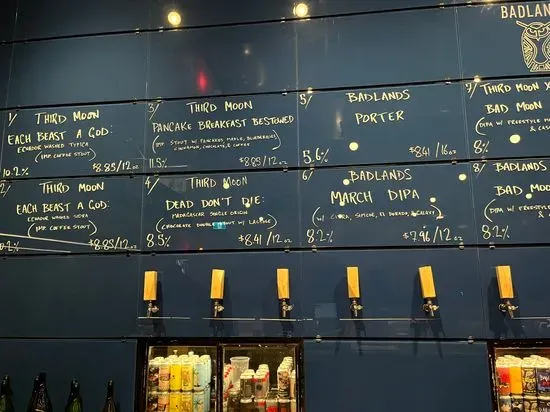 BADLAN
1/ THIRD MOON
EACH BEAST A GOD:
ECUADOR WASHED TYPICA
(IMP. COFFEE STOUT)
10.2% $8.85/12oz
2/ THIRD MOON
EACH BEAST A GOD:
ECUADOR WASHED SIDRA
(IMP. COFFEE STOUT)
0.2% $8.85/12oz
3/ THIRD MOON
PANCAKE BREAKFAST BESTOWED
(IMP. STOUT W/ PANCAKES, MAPLE, BLUEBERRIES
CINNAMON, CHOCOLATE, & COFFEE)
11.5% $8.85/12oz
4/ THIRD MOON
DEAD DON'T DIE:
MADAGASCAR SINGLE ORIGIN
(CHOCOLATE DOUBLE STOUT W/ LACTOSE)
8.5% $8.41/12oz
5/ BADLANDS
PORTER
5.6% $8.41/16oz
6/ BADLANDS
MARCH DIPA
(W/ CITRA, SIMCOE, EL DORADO, GALAXY)
8.2% $7.96/12oz
7/ THIRD MOON X
BAD MOON
(DIPA W/ FREESTYLE M
& CAS
8%
8/ BADLANDS
BAD MOO
(DIPA W/ FREESTYLE
&
8.2%